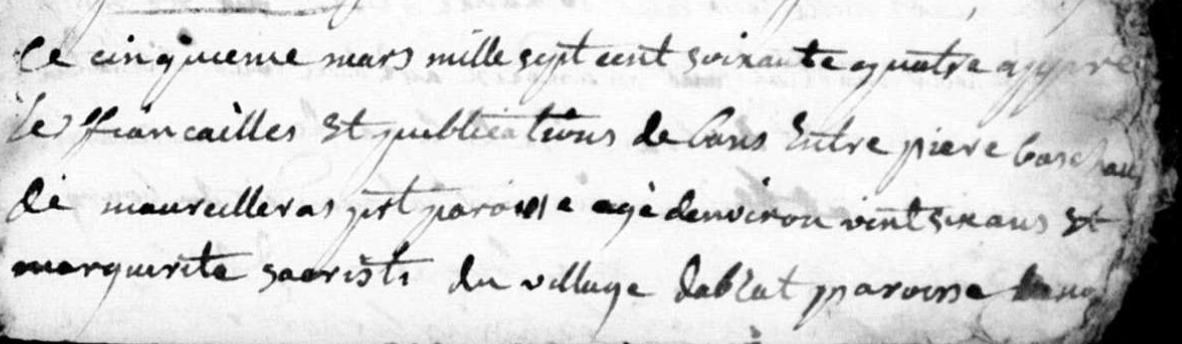 Le cinquieme mars mille sept cent soixante quatre appre
les ffiancailles Et publications de bans Entre piere
de maureilleras pnt paroisse agé denviron vint six ans Et
marguerite sacriste du village dablat paroisse